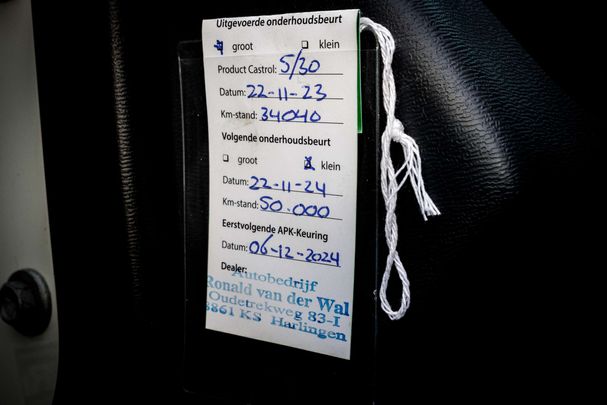 Uitgevoerde onderhoudsbeurt
groot klein
Product Castrol: 5/30
Datum: 22-11-23
Km-stand: 34040
Volgende onderhoudsbeurt
groot klein
Datum: 22-11-24
Km-stand: 50.000
Eerstvolgende APK-Keuring
Datum: 06-12-2024
Dealer:
Autobedrijf
Ronald van der Wal
Oudetrekweg 83-I
8861 KS Harlingen